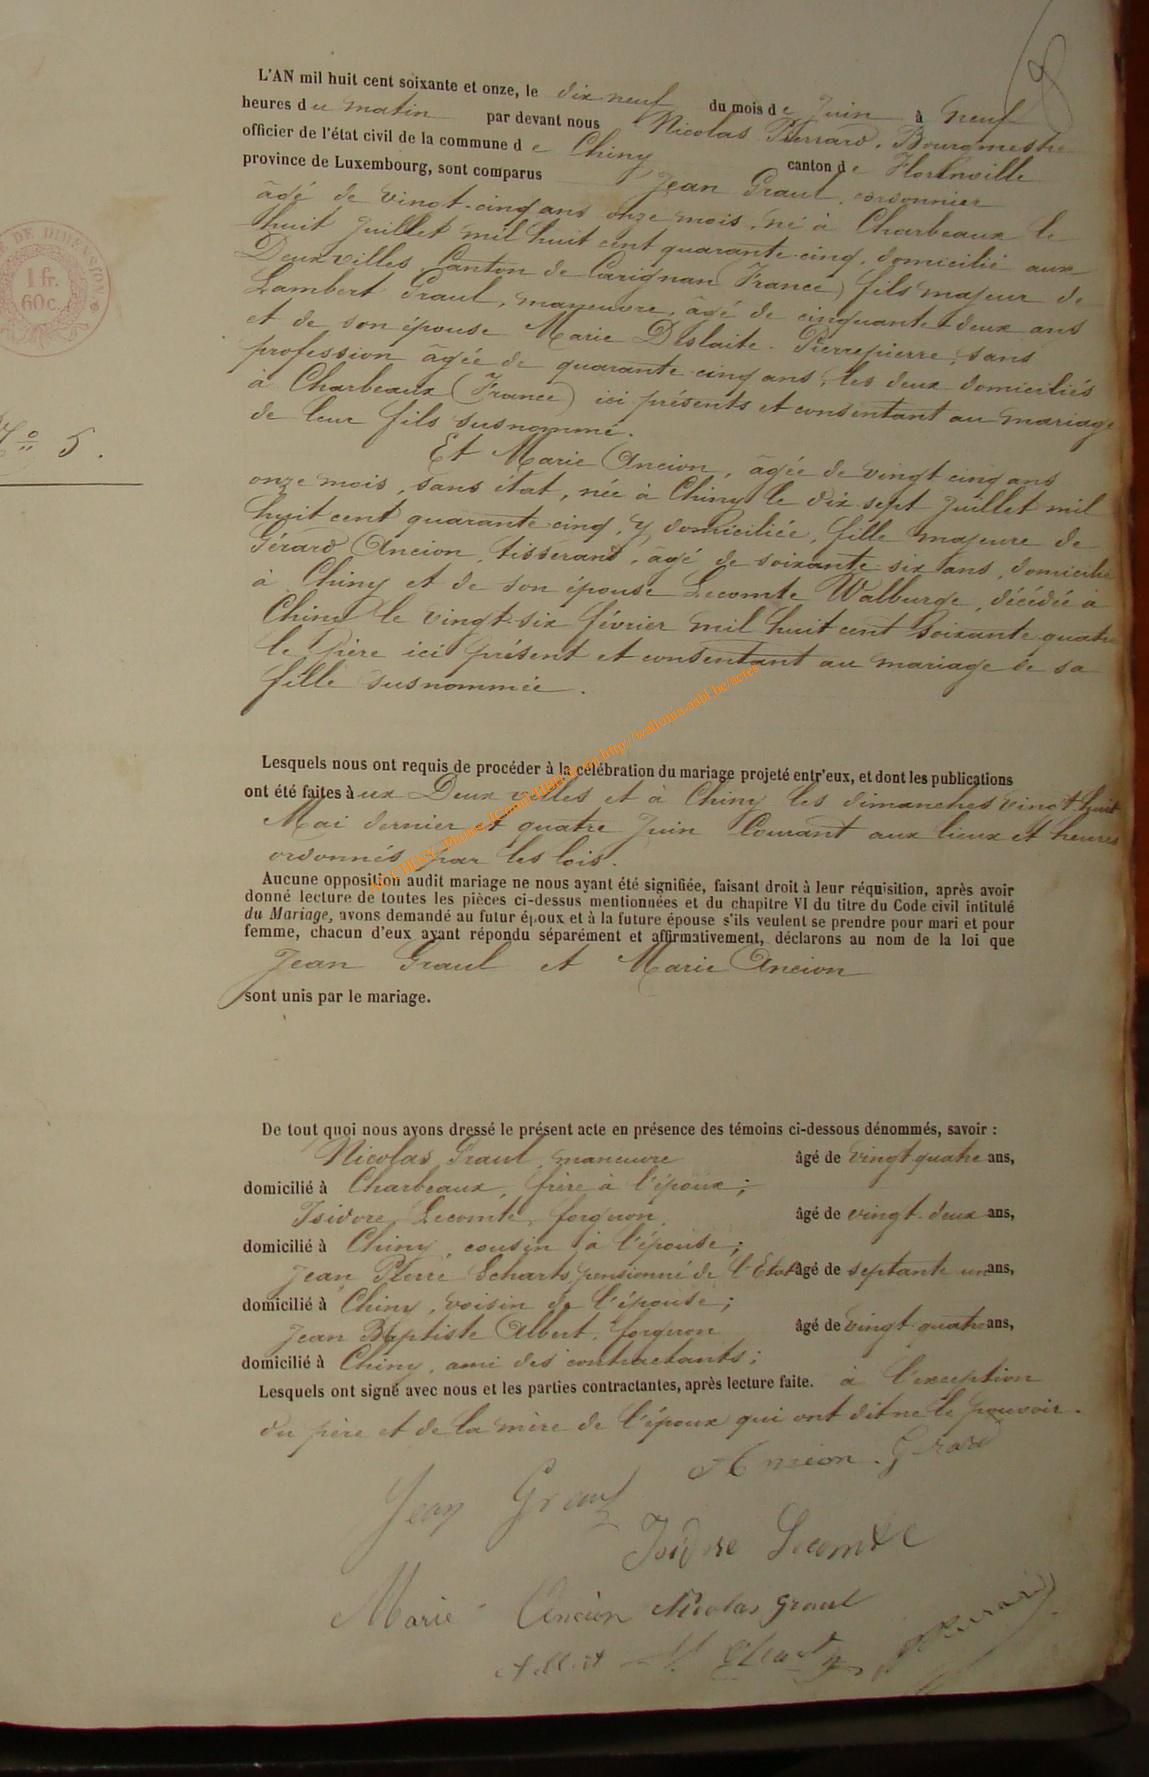 8
L'AN mil huit cent soixante et onze, le dix neuf du mois de Juin à neuf
heures du matin par devant nous Nicolas Pierrard, Bourgmestre
officier de l'état civil de la commune de Chiny canton de Florenville
province de Luxembourg, sont comparus Jean Graul, cordonnier
âgé de vingt-cinq ans onze mois, né à Charbeaux le
huit Juillet mil huit cent quarante cinq, domicilié aux
Deux villes, Canton de Carignan (France) fils majeur de
Lambert Graul, maneuvre, âgé de cinquante deux ans
et de son épouse Marie Dislaite - Pierrepierre, sans
profession âgée de quarante cinq ans, les deux domiciliés
à Charbeaux (France) ici présents et consentant au mariage
de leur fils susnommé.
N° 5.
Et Marie Ancion, âgée de vingt cinq ans
onze mois, sans état, née à Chiny le dix sept Juillet mil
huit cent quarante cinq, y domiciliée, fille majeure de
Gérard Ancion, tisserand, âgé de soixante six ans, domicilié
à Chiny et de son épouse Lecomte Walburge, décédée à
Chiny le vingt-six février mil huit cent soixante quatre
le Père ici présent et consentant au mariage de sa
fille susnommée.
Lesquels nous ont requis de procéder à la célébration du mariage projeté entr'eux, et dont les publications
ont été faites à ux Deux villes et à Chiny les dimanches vingt-huit
Mai dernier et quatre Juin Courant aux lieux et heures
ordonnés par les lois.
Aucune opposition audit mariage ne nous ayant été signifiée, faisant droit à leur réquisition, après avoir
donné lecture de toutes les pièces ci-dessus mentionnées et du chapitre VI du titre du Code civil intitulé
du Mariage, avons demandé au futur époux et à la future épouse s'ils veulent se prendre pour mari et pour
femme, chacun d'eux ayant répondu séparément et affirmativement, déclarons au nom de la loi que
Jean Graul et Marie Ancion
sont unis par le mariage.
De tout quoi nous avons dressé le présent acte en présence des témoins ci-dessous dénommés, savoir :
Nicolas Graul, maneuvre âgé de vingt quatre ans,
domicilié à Charbeaux, frère à l'époux;
Isidore Lecomte, forgeron, âgé de vingt-deux ans,
domicilié à Chiny, cousin à l'épouse;
Jean Pierre Scharts, pensionné de l'Etat âgé de septante un ans,
domicilié à Chiny, voisin de l'épouse;
Jean Baptiste Albert, forgeron âgé de vingt quatre ans,
domicilié à Chiny, ami des contractants;
Lesquels ont signé avec nous et les parties contractantes, après lecture faite. à l'exception
du père et de la mère de l'époux qui ont dit ne le pouvoir.
Ancion Gérard
Jean Graul
Isidore Lecomte
Marie Ancion Nicolas Graul
Albert
DE DIMENSION
1 fr.
60c.